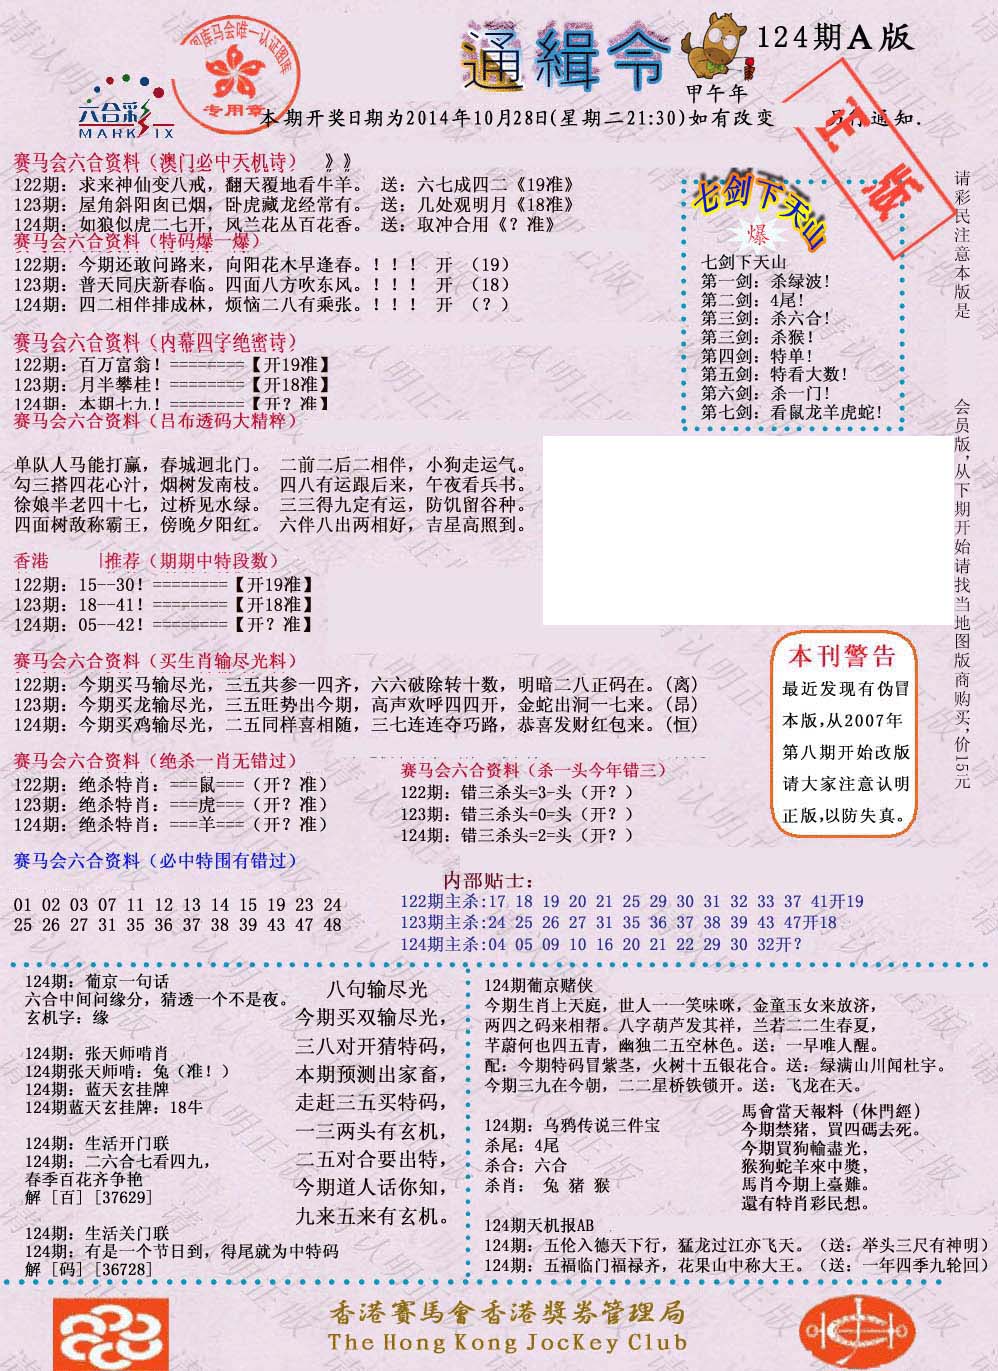 通緝令
124期A版
甲午年
图库马会唯一认证图库
专用章
六合彩
MARK SIX
本期开奖日期为2014年10月28日(星期二21:30)如有改变
另行通知.
正版
赛马会六合资料（澳门必中天机诗） 》》
122期：求来神仙变八戒，翻天覆地看牛羊。 送：六七成四二《19准》
123期：屋角斜阳囱已烟，卧虎藏龙经常有。 送：几处观明月《18准》
124期：如狼似虎二七开，风兰花丛百花香。 送：取冲合用《？准》
赛马会六合资料（特码爆一爆）
122期：今期还敢问路来，向阳花木早逢春。！！！ 开 （19）
123期：普天同庆新春临。四面八方吹东风。！！！ 开 （18）
124期：四二相伴排成林，烦恼二八有乘张。！！！ 开 （？）
赛马会六合资料（内幕四字绝密诗）
122期：百万富翁！========【开19准】
123期：月半攀桂！========【开18准】
124期：本期七九！========【开？准】
七剑下天山
爆
七剑下天山
第一剑：杀绿波！
第二剑：4尾！
第三剑：杀六合！
第三剑：杀猴！
第四剑：特单！
第五剑：特看大数！
第六剑：杀一门！
第七剑：看鼠龙羊虎蛇！
请彩民注意本版是
会员版，从下期开始请找当地图版商购买，价15元
赛马会六合资料（吕布透码大精粹）
单队人马能打赢，春城迥北门。 二前二后二相伴，小狗走运气。
勾三搭四花心汁，烟树发南枝。 四八有运跟后来，午夜看兵书。
徐娘半老四十七，过桥见水绿。 三三得九定有运，防饥留谷种。
四面树敌称霸王，傍晚夕阳红。 六伴八出两相好，吉星高照到。
香港 推荐（期期中特段数）
122期：15--30！========【开19准】
123期：18--41！========【开18准】
124期：05--42！========【开？准】
赛马会六合资料（买生肖输尽光料）
122期：今期买马输尽光，三五共参一四齐，六六破除转十数，明暗二八正码在。(离)
123期：今期买龙输尽光，三五旺势出今期，高声欢呼四四开，金蛇出洞一七来。(昂)
124期：今期买鸡输尽光，二五同样喜相随，三七连连夺巧路，恭喜发财红包来。(恒)
本刊警告
最近发现有伪冒
本版,从2007年
第八期开始改版
请大家注意认明
正版,以防失真。
赛马会六合资料（绝杀一肖无错过）
122期：绝杀特肖：===鼠===（开？准）
123期：绝杀特肖：===虎===（开？准）
124期：绝杀特肖：===羊===（开？准）
赛马会六合资料（杀一头今年错三）
122期：错三杀头=3-头（开？）
123期：错三杀头=0=头（开？）
124期：错三杀头=2=头（开？）
赛马会六合资料（必中特围有错过）
01 02 03 07 11 12 13 14 15 19 23 24
25 26 27 31 35 36 37 38 39 43 47 48
内部贴士：
122期主杀:17 18 19 20 21 25 29 30 31 32 33 37 41开19
123期主杀:24 25 26 27 31 35 36 37 38 39 43 47开18
124期主杀:04 05 09 10 16 20 21 22 29 30 32开？
124期：葡京一句话
六合中间问缘分，猜透一个不是夜。
玄机字：缘
124期：张天师啃肖
124期张天师啃：兔（准！）
124期：蓝天玄挂牌
124期蓝天玄挂牌：18牛
124期：生活开门联
124期：二六合七看四九，
春季百花齐争艳
解［百］[37629]
124期：生活关门联
124期：有是一个节日到，得尾就为中特码
解［码］[36728]
八句输尽光
今期买双输尽光，
三八对开猜特码，
本期预测出家畜，
走赶三五买特码，
一三两头有玄机，
二五对合要出特，
今期道人话你知，
九来五来有玄机。
124期葡京赌侠
今期生肖上天庭，世人一一笑味咪，金童玉女来放济，
两四之码来相帮。八字葫芦发其祥，兰若二二生春夏，
芊蔚何也四五青，幽独二五空林色。送：一早唯人醒。
配：今期特码冒紫茎，火树十五银花合。送：绿满山川闻杜宇。
今期三九在今朝，二二星桥铁锁开。送：飞龙在天。
124期：乌鸦传说三件宝
杀尾：4尾
杀合：六合
杀肖： 兔 猪 猴
馬會當天報料（休門經）
今期禁猪，買四碼去死。
今期買狗輸盡光，
猴狗蛇羊來中獎，
馬肖今期上臺難。
還有特肖彩民想。
124期天机报AB
124期：五伦入德天下行，猛龙过江亦飞天。（送：举头三尺有神明）
124期：五福临门福禄齐，花果山中称大王。（送：一年四季九轮回）
香港賽馬會香港獎券管理局
The Hong Kong Jockey Club